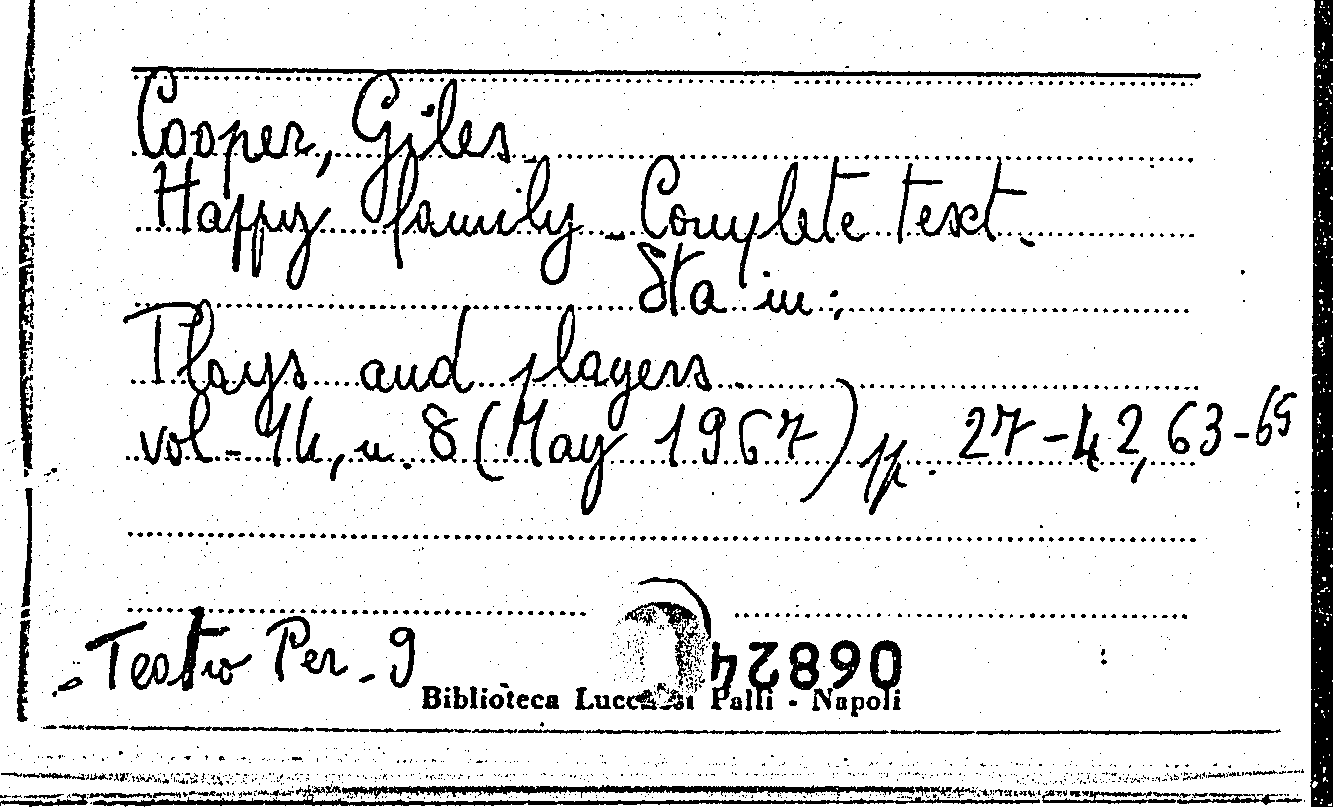 Cooper, Giles.
Happy family - Complete text.
Sta in:
Plays and players.
vol - 14, n. 8 (May 1967) pp. 27-42, 63-65
Teatro Per. - 9
06824
Biblioteca Lucchesi Palli - Napoli